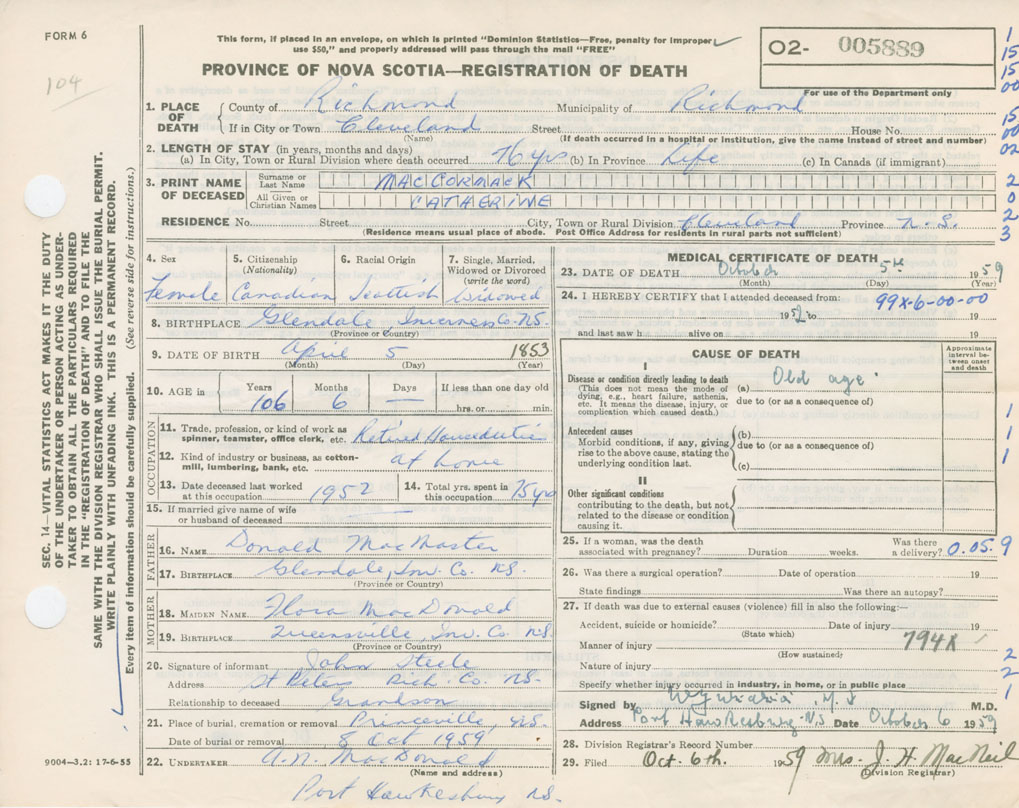 FORM 6
This form, if placed in an envelope, on which is printed "Dominion Statistics—Free, penalty for improper
use $50," and properly addressed will pass through the mail "FREE"
PROVINCE OF NOVA SCOTIA—REGISTRATION OF DEATH
O2- 005889
For use of the Department only
104
1
15
15
00
15
00
02
2
0
2
3
SEC. 14—VITAL STATISTICS ACT MAKES IT THE DUTY
OF THE UNDERTAKER OR PERSON ACTING AS UNDER-
TAKER TO OBTAIN ALL THE PARTICULARS REQUIRED
IN THE "REGISTRATION OF DEATH" AND TO FILE THE
SAME WITH THE DIVISION REGISTRAR WHO SHALL ISSUE THE BURIAL PERMIT.
WRITE PLAINLY WITH UNFADING INK. THIS IS A PERMANENT RECORD.
Every item of information should be carefully supplied. (See reverse side for instructions.)
1. PLACE OF DEATH County of Richmond Municipality of Richmond
If in City or Town Cleveland Street House No.
(Name) (If death occurred in a hospital or institution, give the name instead of street and number)
2. LENGTH OF STAY (in years, months and days)
(a) In City, Town or Rural Division where death occurred 76 yrs (b) In Province Life (c) In Canada (if immigrant)
3. PRINT NAME OF DECEASED Surname or Last Name MACCORMACK
All Given or Christian Names CATHERINE
RESIDENCE No. Street City, Town or Rural Division Cleveland Province N.S.
(Residence means usual place of abode. Post Office Address for residents in rural parts not sufficient)
4. Sex Female
5. Citizenship (Nationality) Canadian
6. Racial Origin Scottish
7. Single, Married, Widowed or Divorced (write the word) Widowed
8. BIRTHPLACE Glendale, Inverness Co. N.S.
(Province or Country)
9. DATE OF BIRTH April 5 1853
(Month) (Day) (Year)
10. AGE in Years 106 Months 6 Days — If less than one day old
hrs. or min.
OCCUPATION
11. Trade, profession, or kind of work as spinner, teamster, office clerk, etc. Retired Houseduties
12. Kind of industry or business, as cotton-mill, lumbering, bank, etc. at home
13. Date deceased last worked at this occupation 1952
14. Total yrs. spent in this occupation 75 yrs
15. If married give name of wife or husband of deceased
FATHER
16. NAME Donald MacMaster
17. BIRTHPLACE Glendale, Inv. Co. N.S.
(Province or Country)
MOTHER
18. MAIDEN NAME Flora MacDonald
19. BIRTHPLACE Queensville, Inv. Co N.S.
(Province or Country)
20. Signature of informant John Steele
Address St Peters Rich. Co. N.S.
Relationship to deceased Grandson
21. Place of burial, cremation or removal Princeville, N.S.
Date of burial or removal 8 Oct 1959
22. UNDERTAKER A.N. MacDonald
(Name and address)
Port Hawkesbury N.S.
9004—3.2: 17-6-55
MEDICAL CERTIFICATE OF DEATH
23. DATE OF DEATH October 5th 1959
(Month) (Day) (Year)
24. I HEREBY CERTIFY that I attended deceased from: 99X-6-00-00
19 to 19
and last saw h alive on 19
CAUSE OF DEATH
Approximate interval between onset and death
I
Disease or condition directly leading to death
(This does not mean the mode of dying, e.g., heart failure, asthenia, etc. It means the disease, injury, or complication which caused death.)
(a) Old age
due to (or as a consequence of)
Antecedent causes
Morbid conditions, if any, giving rise to the above cause, stating the underlying condition last.
(b)
due to (or as a consequence of)
(c)
1
1
1
II
Other significant conditions
contributing to the death, but not related to the disease or condition causing it.
25. If a woman, was the death associated with pregnancy? Duration weeks. Was there a delivery? 0.05.9
26. Was there a surgical operation? Date of operation 19
State findings Was there an autopsy?
27. If death was due to external causes (violence) fill in also the following:—
Accident, suicide or homicide? Date of injury 19
(State which)
Manner of injury 794X
(How sustained)
Nature of injury
Specify whether injury occurred in industry, in home, or in public place
2
2
1
Signed by M.D.
Address Port Hawkesbury N.S Date October 6 1959
28. Division Registrar's Record Number
29. Filed Oct. 6th. 1959 Mrs. J. H. MacNeil
(Division Registrar)